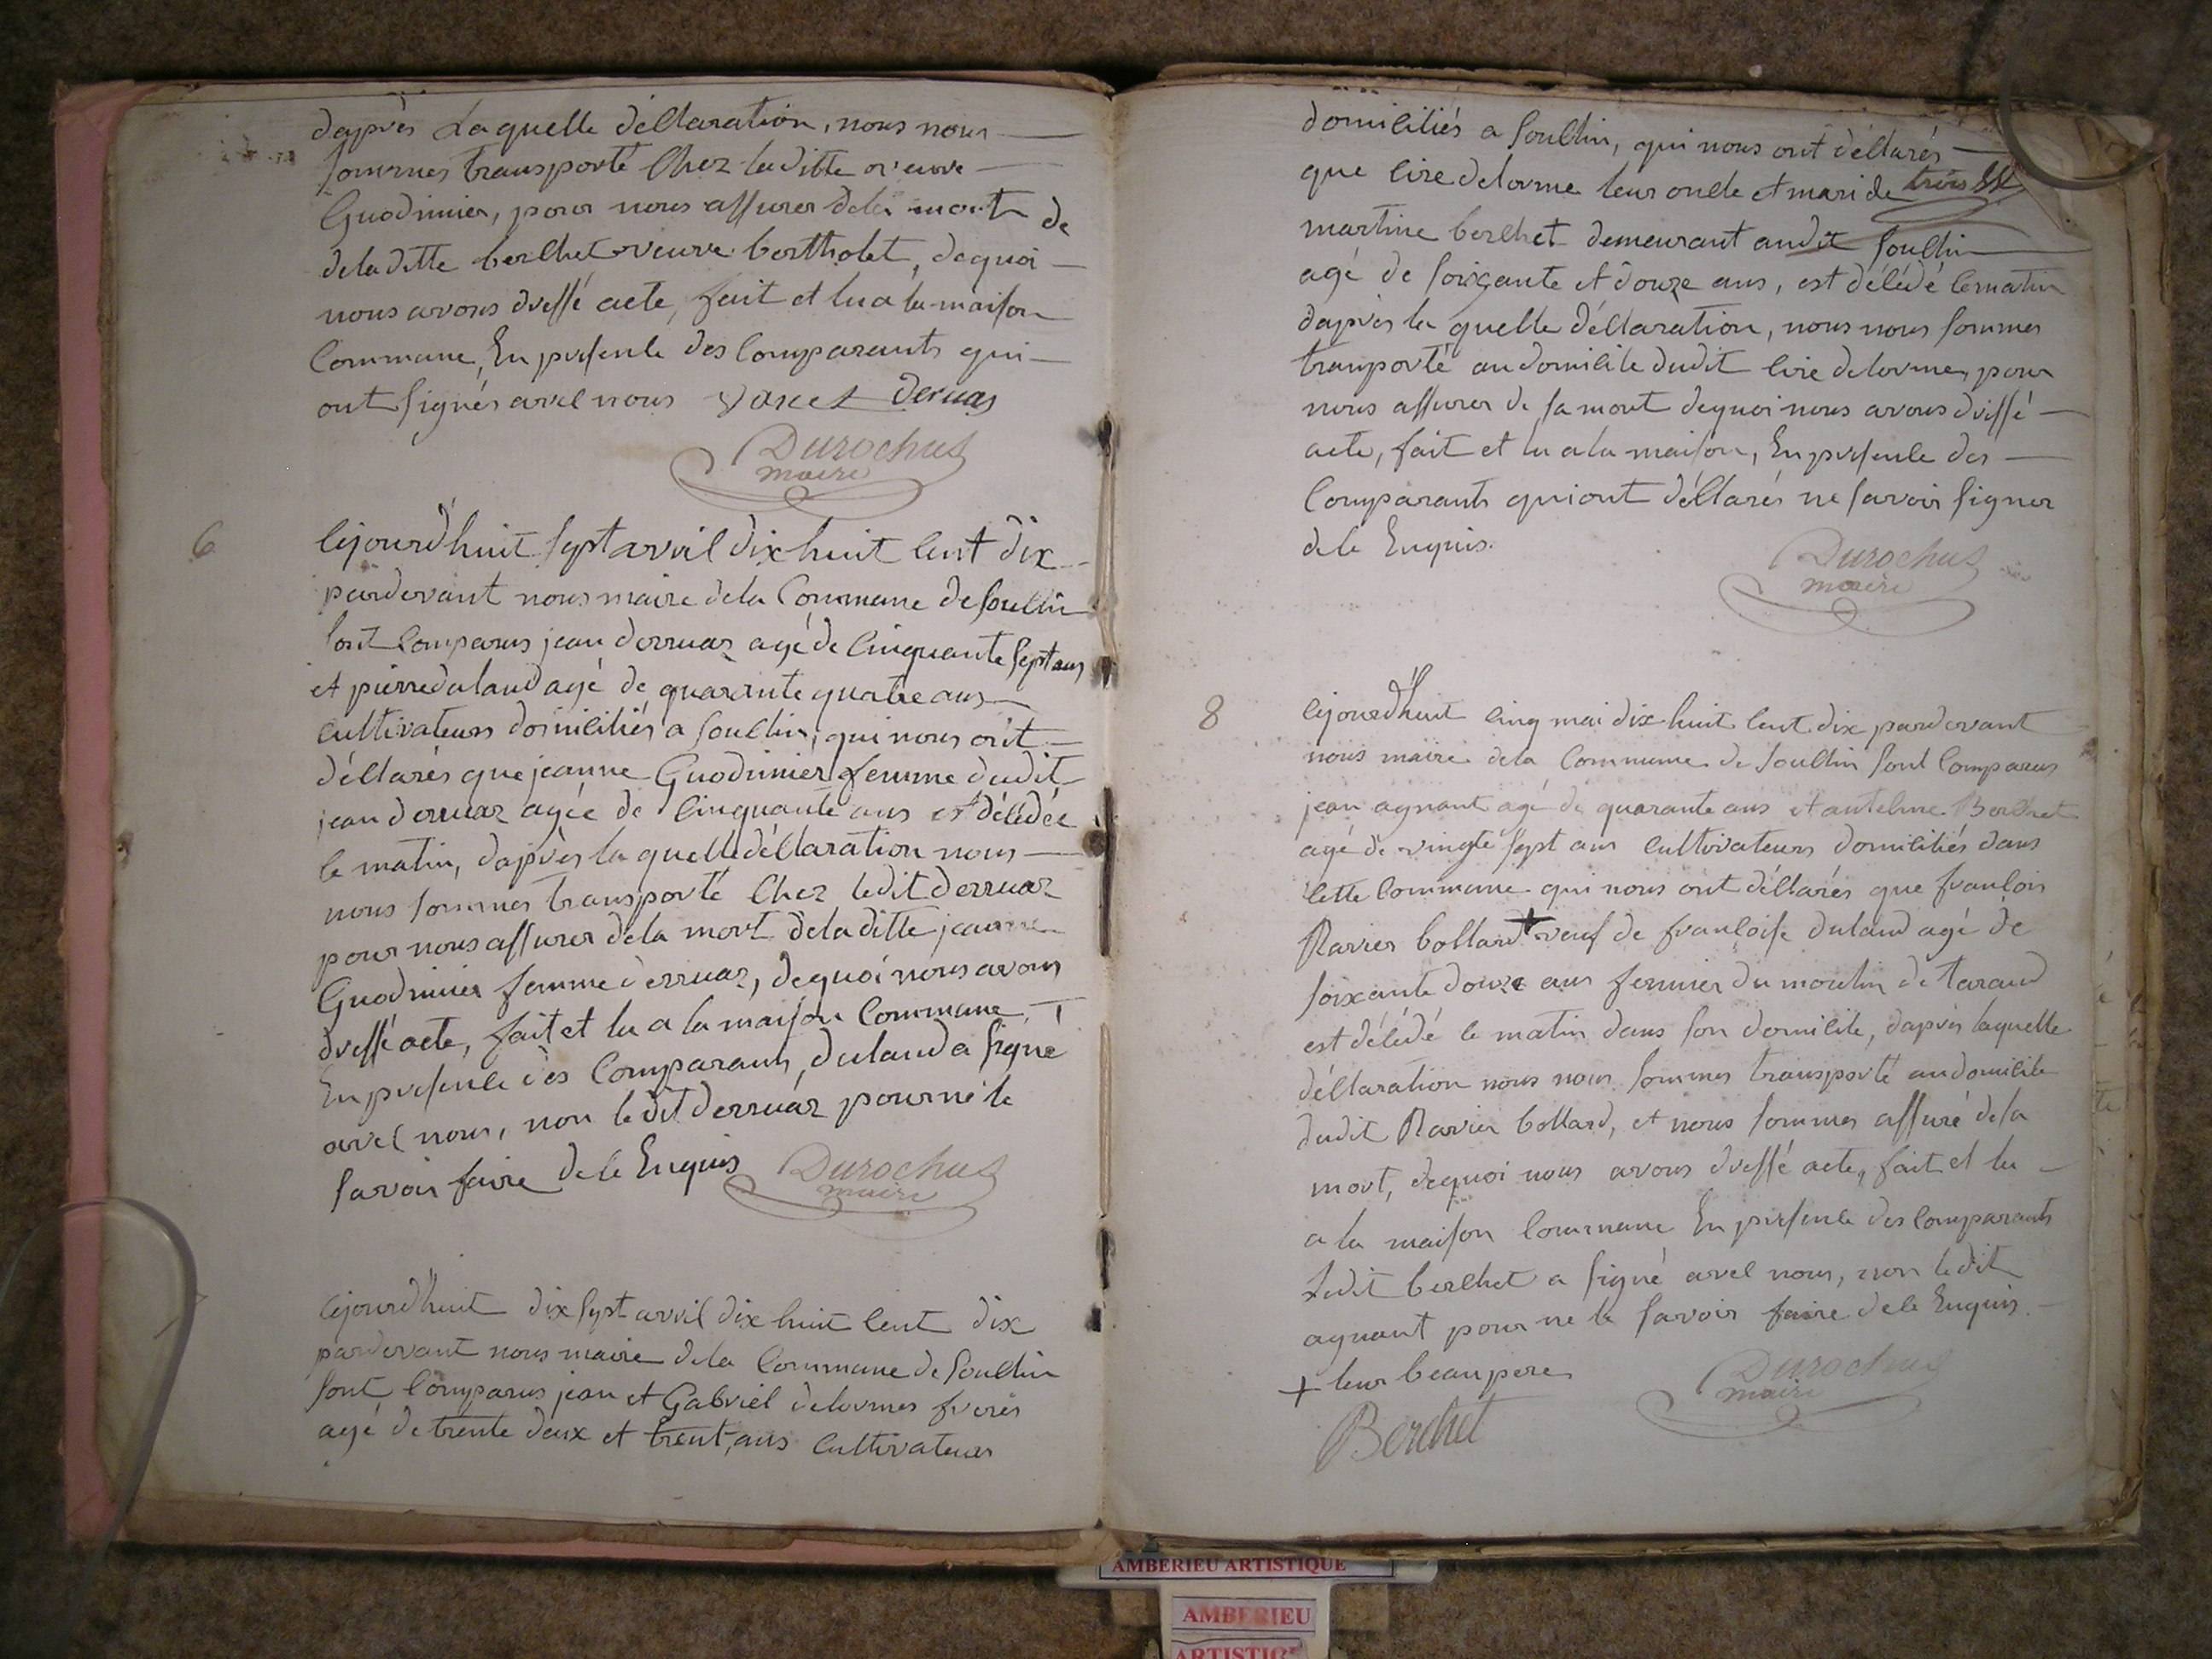 daprès Laquelle déclaration, nous nous
sommes transporté Chez laditte veuve
Guodimier, pour nous assurer dela mort de
dela ditte berchet veuve bertholet, dequoi
nous avons dressé acte, fait et lu a la maison
Commune, En presence des Comparants qui
ont signés avec nous deruas
Durochat
maire
6
Cejourd'huit sept avril dix huit cent dix
pardevant nous maire dela Commune de souclin
sont Comparus jean derruaz agé de Cinquante sept ans
et pierre duland agé de quarante quatre ans
Cultivateurs domiciliés a souclin, qui nous ont
déclarés que jeanne Guodimier femme dudit
jean derruaz agée de Cinquante ans est décédée
ce matin, daprès la quelle déclaration nous
nous sommes transporté Chez ledit derruaz
pour nous assurer dela mort dela ditte jeanne
Guodimier femme derruaz, dequoi nous avons
dressé acte, fait et lu a la maison Commune
En presence des Comparants, duland a signé
avec nous, non le dit derruaz pour ne le
savoir faire de ce Enquis Durochat
maire
Cejourd'huit dix sept avril dix huit cent dix
pardevant nous maire dela Commune de souclin
sont Comparus jean et Gabriel delormes freres
agé de trente deux et trent, ans Cultivateurs
domiciliés a souclin, qui nous ont déclarés
que cire delorme leur oncle et mari de
martine berchet demeurant audit souclin
agé de soixante et douze ans, est décédé ce matin
daprès la quelle déclaration, nous nous sommes
tranporté au domicile dudit cire delorme, pour
nous assurer de sa mort dequoi nous avons dressé
acte, fait et lu a la maison, En presence des
Comparants qui ont déclarés ne savoir signer
de ce Enquis.
Durochat
maire
8
Cejourd'huit cinq mai dix huit cent dix pardevant
nous maire dela Commune de souclin sont Comparus
jean agnant agé de quarante ans et antelme Berchet
agé de vingte sept ans Cultivateurs domiciliés dans
cette Commune qui nous ont déclarés que francois
Ravier bollard + veuf de francoise duland agé de
soixante douze ans fermier du moulin de taraud
est décédé ce matin dans son domicile, daprès laquelle
déclaration nous nous sommes transporté au domicile
dudit Ravier bollard, et nous sommes assuré de sa
mort, dequoi nous avons dressé acte, fait et lu
a la maison Commune En presence des Comparants
Ledit berchet a signé avec nous, non ledit
agnant pour ne le savoir faire de ce Enquis.
+ leur beau pere
Durochat
maire
Berchet
AMBERIEU ARTISTIQUE
AMBERIEU
ARTISTIQUE